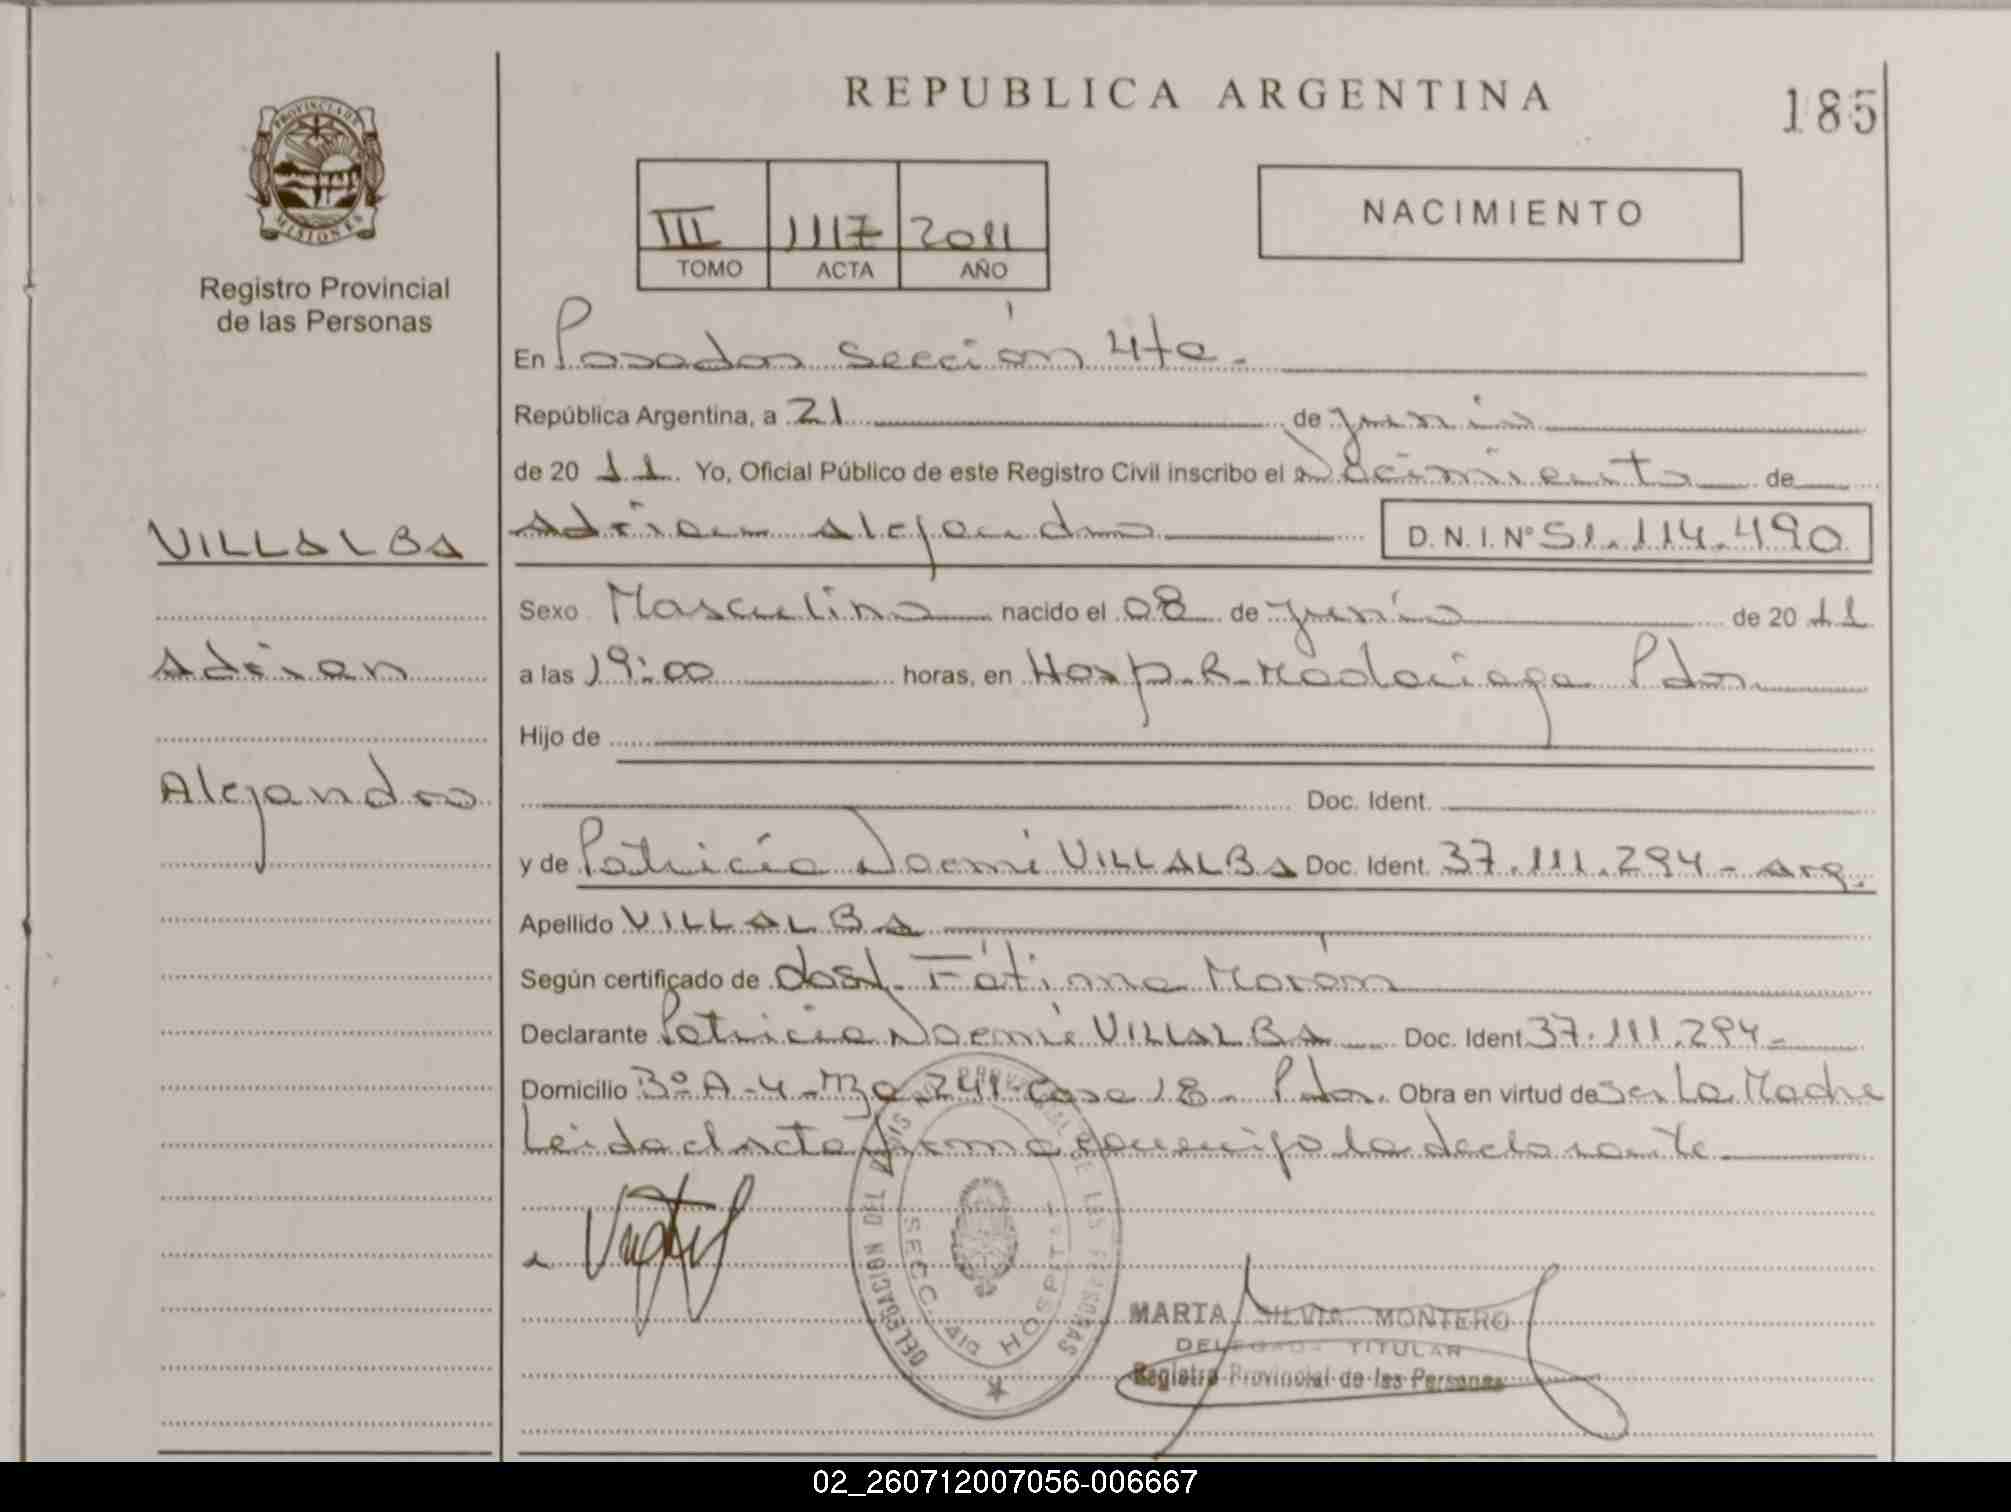 REPUBLICA ARGENTINA
185
PROVINCIA DE
MISIONES
Registro Provincial
de las Personas
III 1117 2011
TOMO ACTA AÑO
NACIMIENTO
En Posadas Sección 4ta.
República Argentina, a 21 de junio
de 20 11. Yo, Oficial Público de este Registro Civil inscribo el Nacimiento de
VILLALBA
Adrian Alejandro D.N.I.Nº 51.114.490
Sexo Masculino nacido el 08 de junio de 20 11
Adrian
a las 19:00 horas, en Hosp. R. Madariaga Pdas
Hijo de
Alejandro
Doc. Ident.
y de Patricia Noemí VILLALBA Doc. Ident. 37.111.294- Arg.
Apellido VILLALBA
Según certificado de obst. Fátima Morán
Declarante Patricia Noemí VILLALBA Doc. Ident. 37.111.294-
Domicilio Bº A-4-Mza 241 Casa 18- Pdas. Obra en virtud de Ser La Madre
Leida el acta firma conmigo la declarante
DELEGACION DEL REGISTRO PROVINCIAL DE LAS PERSONAS
SECC. 4ta HOSPITAL
MARTA SILVIA MONTERO
DELEGADA TITULAR
Registro Provincial de las Personas
02_260712007056-006667